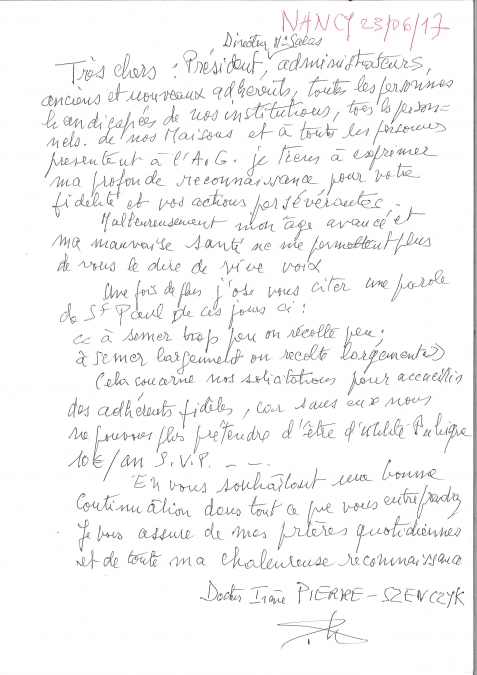 NANCY 23/06/17
Directeur Mr Salas
Très chers : Président, administrateurs,
anciens et nouveaux adhérents, toutes les personnes
handicapées de nos institutions, tous les person-
nels de nos Maisons et à toutes les personnes
présentent à l'A.G. je tiens à exprimer
ma profonde reconnaissance pour votre
fidélité et vos actions persévérantes.
Malheureusement mon âge avancé et
ma mauvaise santé ne me permettent plus
de vous le dire de vive voix
Une fois de plus j'ose vous citer une parole
de St Paul de ces jours ci :
<< à semer trop peu on récolte peu ;
à semer largement on récolte largement >>
Cela concerne nos sollicitations pour accueillir
des adhérents fidèles, car sans eux nous
ne pouvons plus prétendre d'être d'Utilité Publique
10€/an S.V.P. - -
En vous souhaitant une bonne
Continuation dans tout ce que vous entreprendrez
Je vous assure de mes prières quotidiennes
et de toute ma chaleureuse reconnaissance
Docteur Irène PIERRE-SZENCZYK